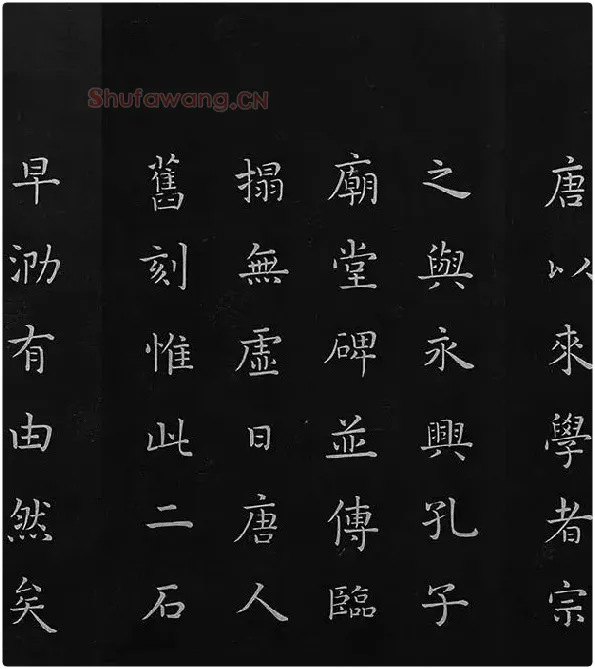 Shufawang.CN
唐以來學者宗
之與永興孔子
廟堂碑並傳臨
搨無虛日唐人
舊刻惟此二石
早泐有由然矣